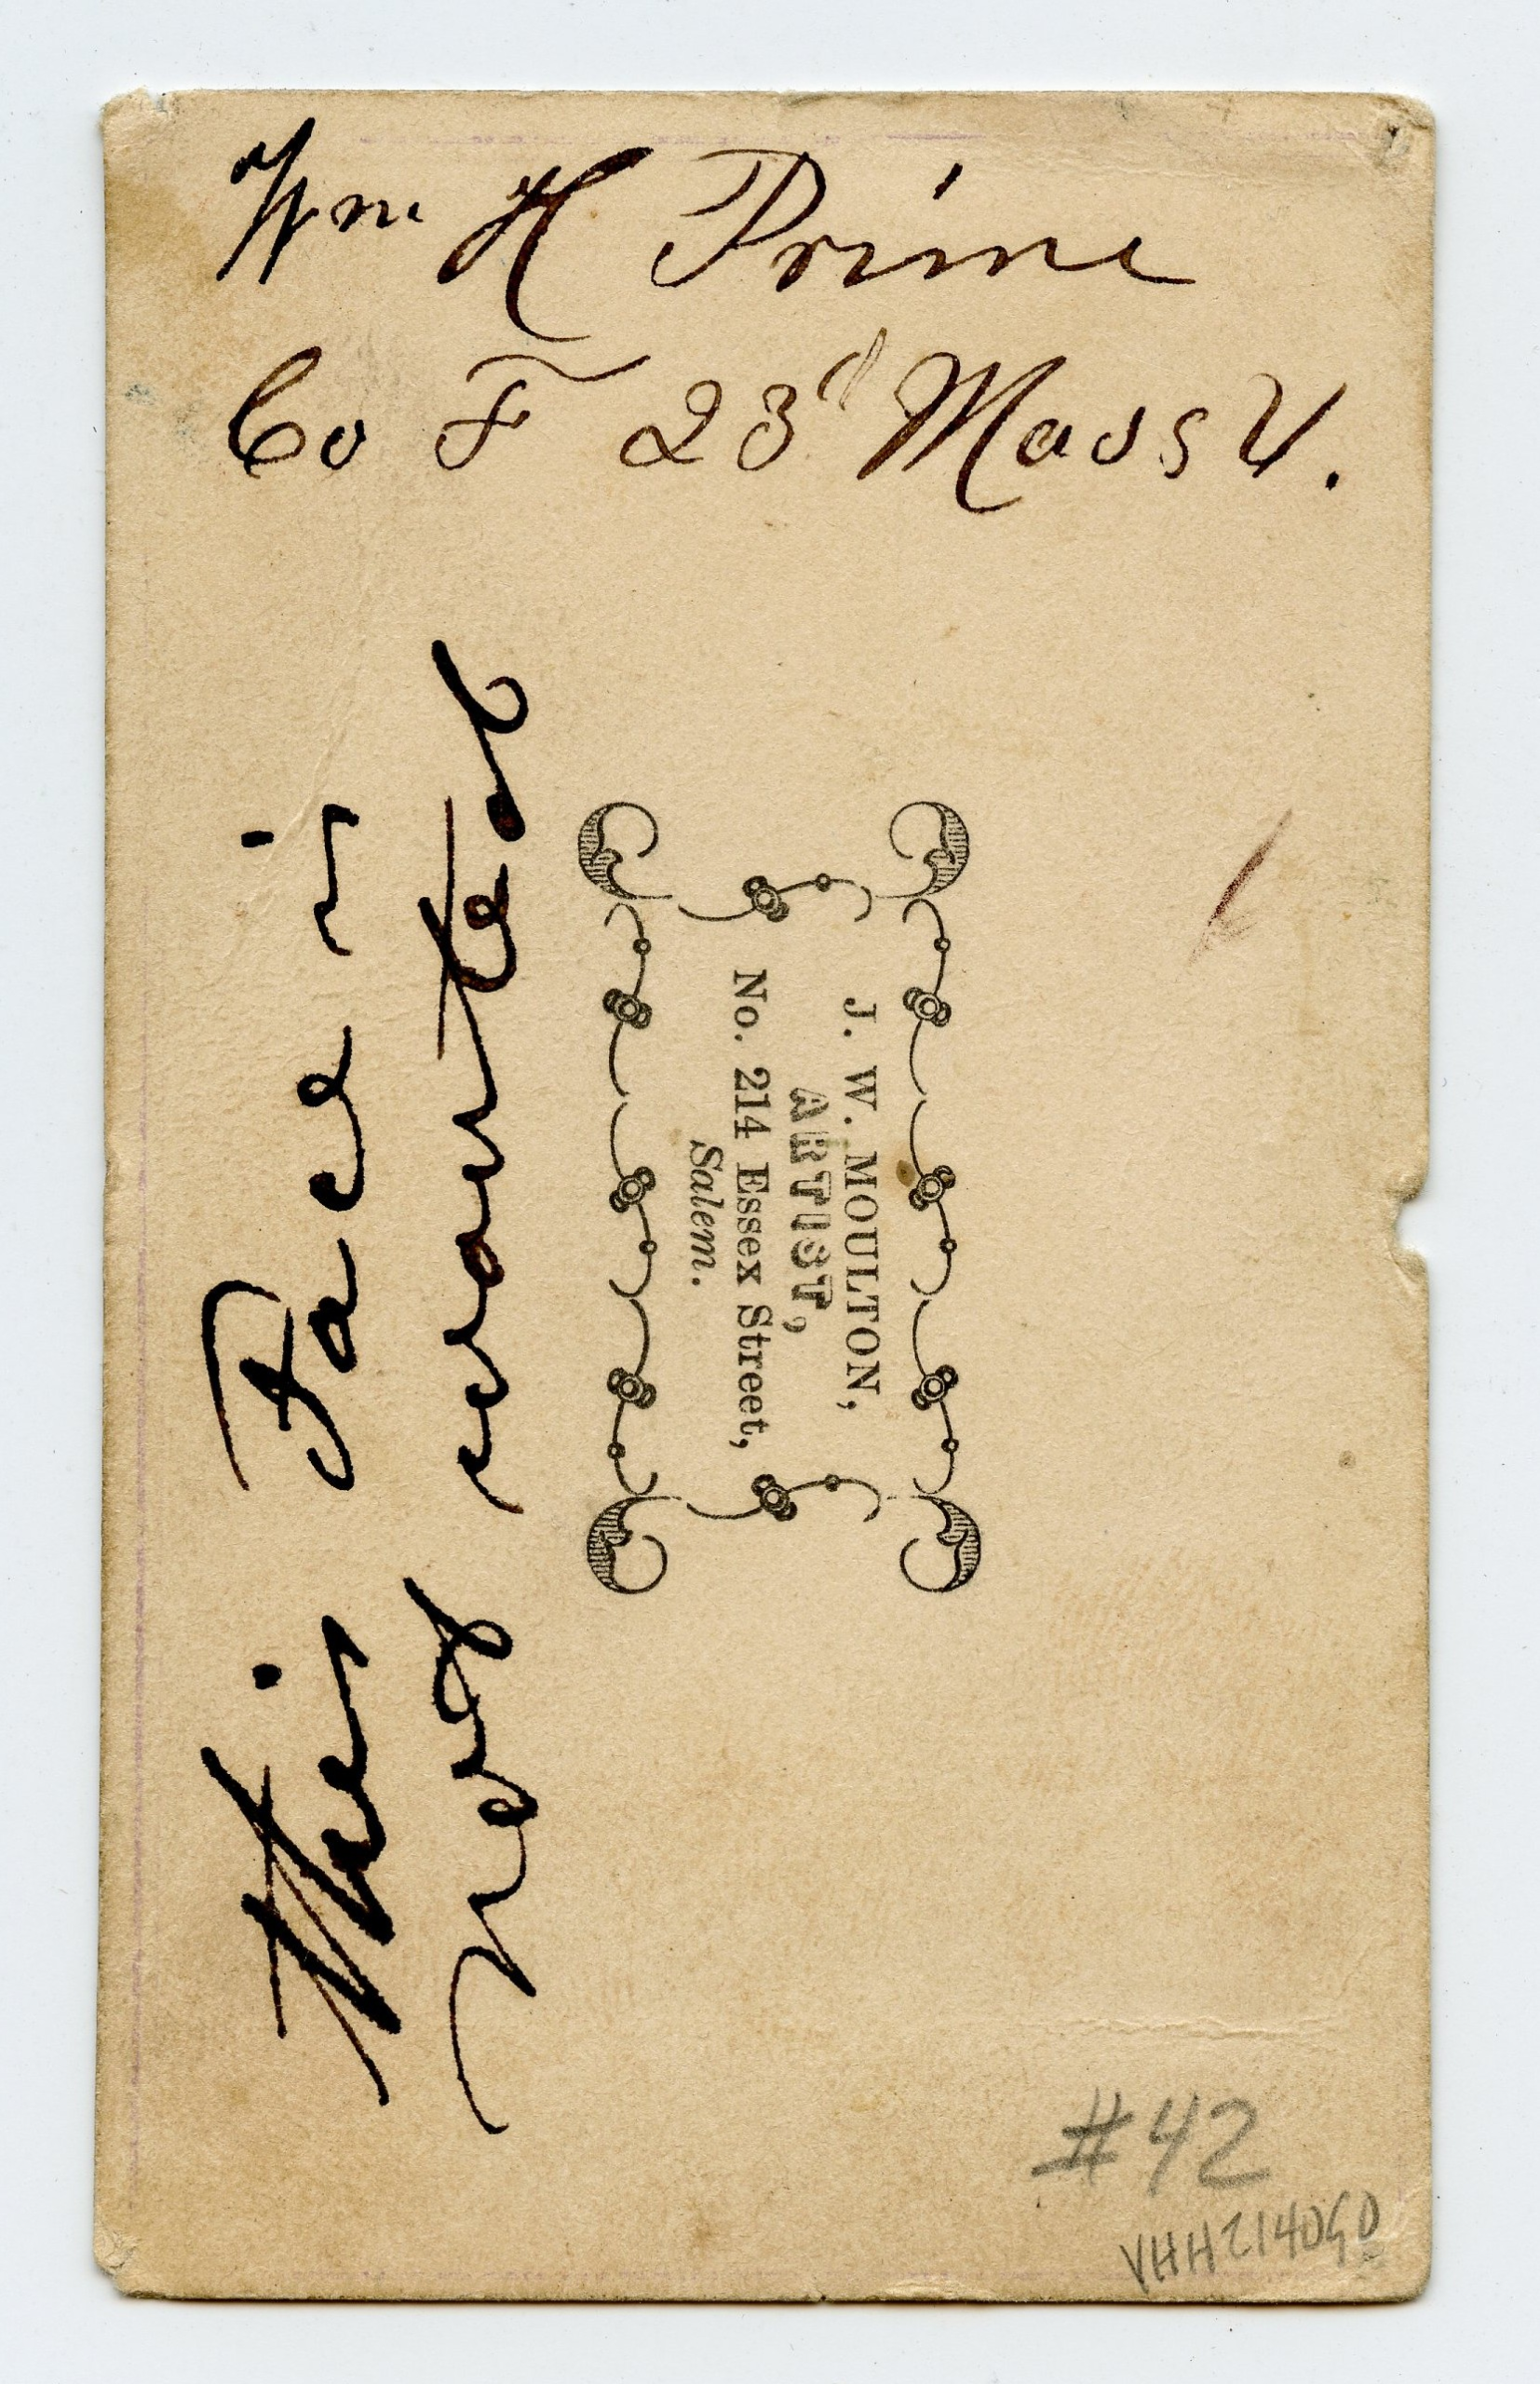 Wm H Prime
Co F 23d Mass V.
This Face is
not wanted
J. W. MOULTON,
ARTIST,
No. 214 Essex Street,
Salem.
#42